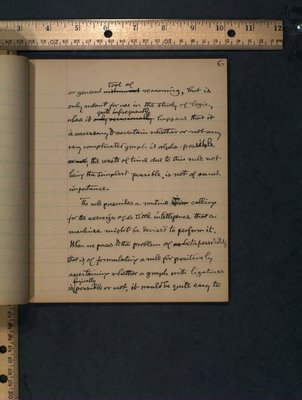 6
tool of
or general instrument reasoning, but is
only meant for use in the study of logic,
quite infrequently
where it only occasionally happens that it
is necessary to ascertain whether or not any
very complicated graph is alpha-possible
or not, the waste of time due to this rule not
being the simplest possible, is not of much
importance.
The rule presents a routine calling
for the exercise of so little intelligence that a
machine might be devised to perform it.
When we pass to the problem of beta possibility
that is of formulating a rule for positively
ascertaining whether a graph with ligatures
logically
is possible or not, it would be quite easy to